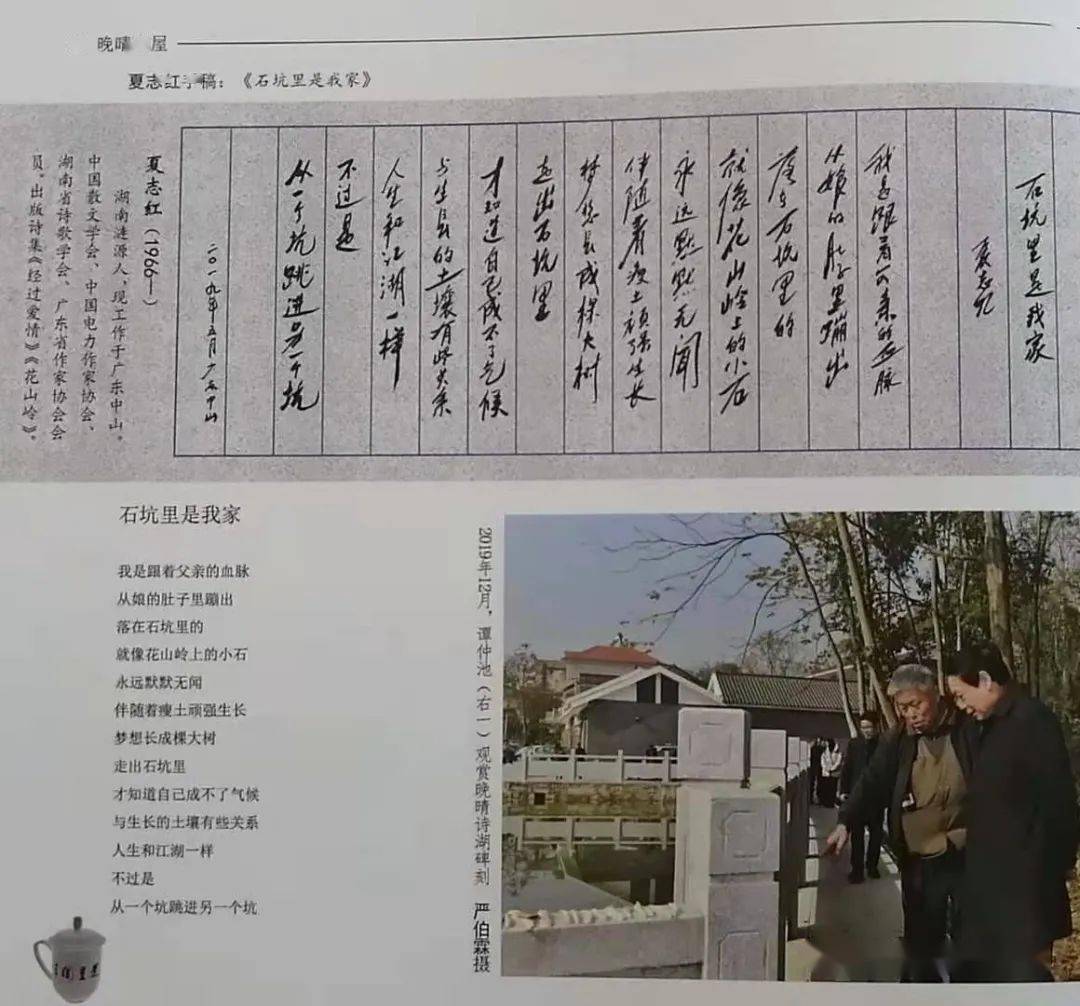 晚晴 屋
夏志红手稿：《石坑里是我家》
石坑里是我家
夏志红
我是跟着父亲的血脉
从娘的肚子里蹦出
落在石坑里的
就像花山岭上的小石
永远默默无闻
伴随着瘦土顽强生长
梦想长成棵大树
走出石坑里
才知道自己成不了气候
与生长的土壤有些关系
人生和江湖一样
不过是
从一个坑跳进另一个坑
二〇一九年五月 广东中山
夏志红（1966—）
湖南涟源人，现工作于广东中山。
中国散文学会、中国电力作家协会、
湖南省诗歌学会、广东省作家协会会
员。出版诗集《经过爱情》《花山岭》。
石坑里是我家
我是跟着父亲的血脉
从娘的肚子里蹦出
落在石坑里的
就像花山岭上的小石
永远默默无闻
伴随着瘦土顽强生长
梦想长成棵大树
走出石坑里
才知道自己成不了气候
与生长的土壤有些关系
人生和江湖一样
不过是
从一个坑跳进另一个坑
2019年12月，谭仲池（右一）观赏晚晴诗湖碑刻 严伯霖摄